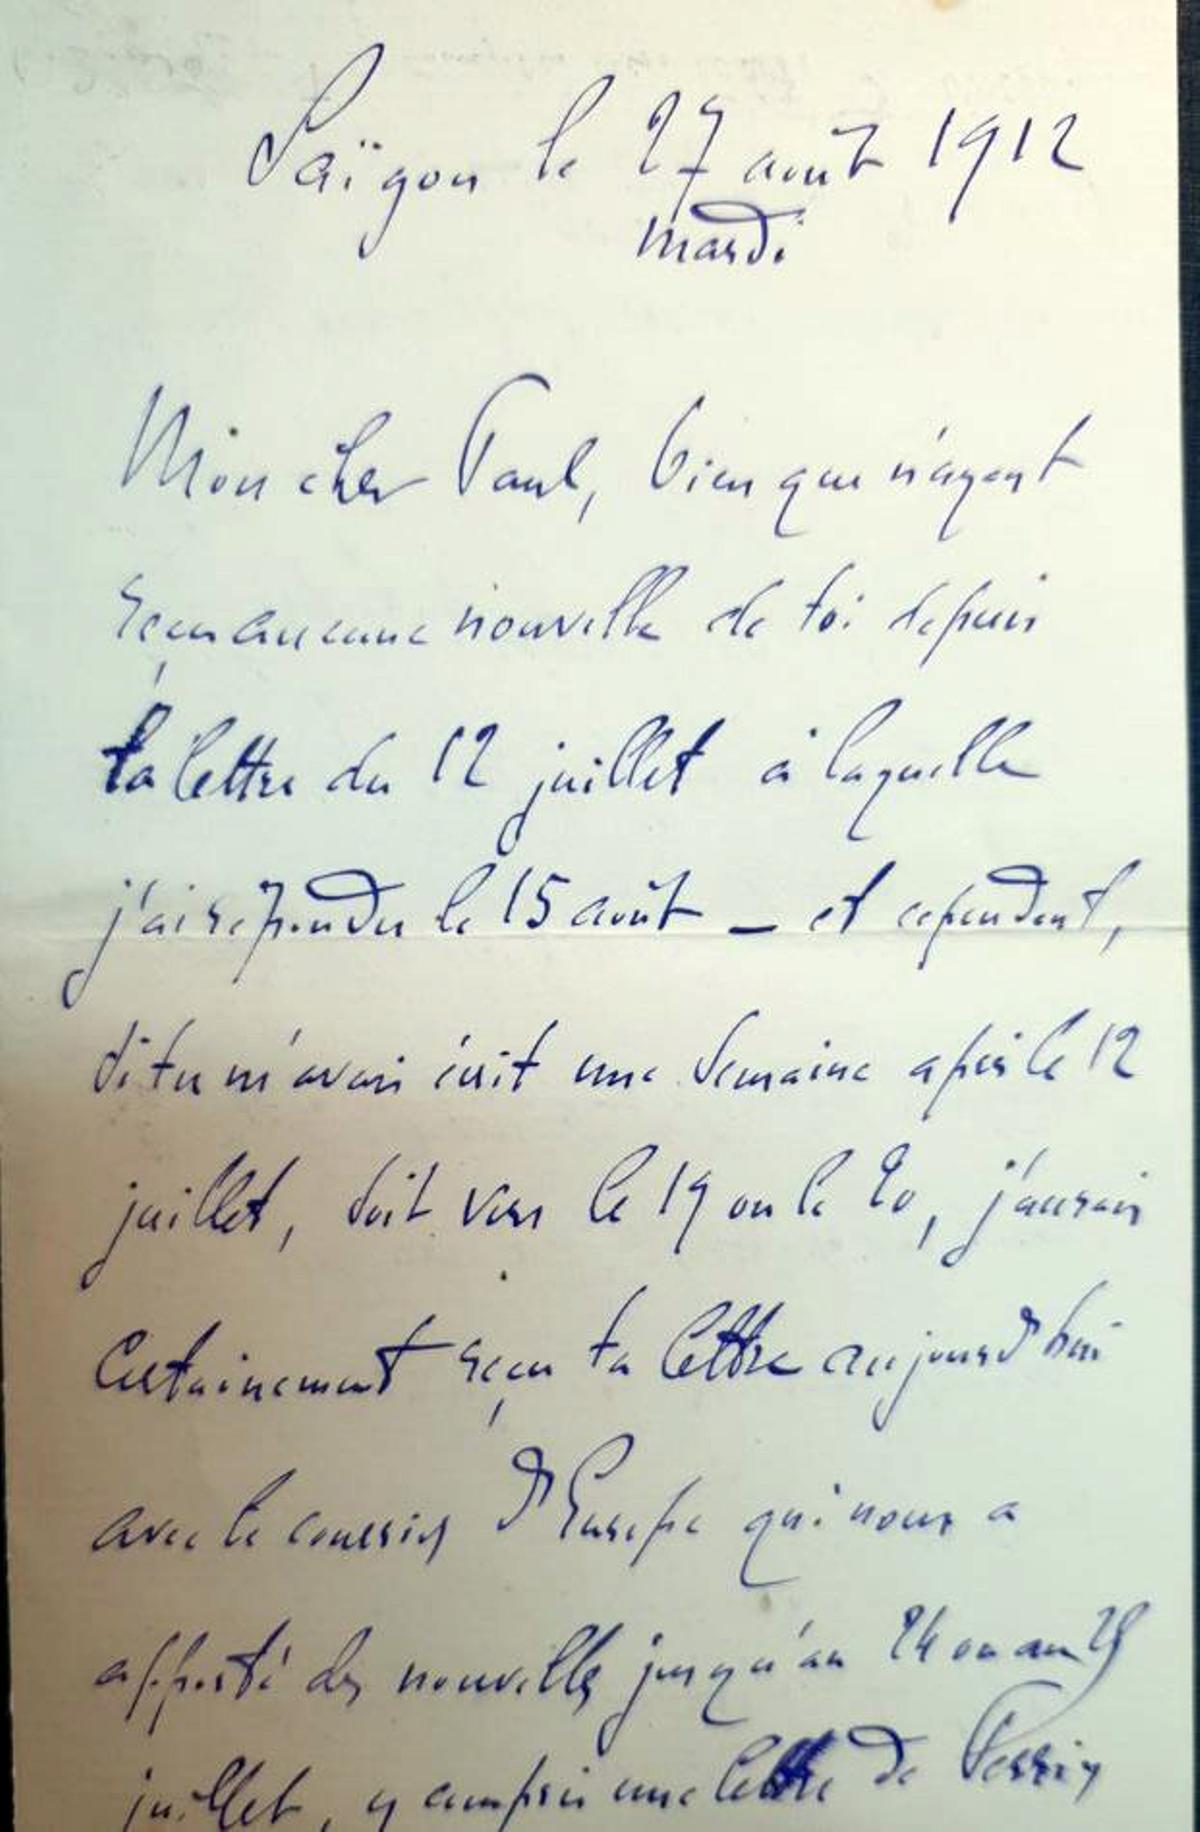 Saïgon le 27 août 1912
mardi
Mon cher Paul, bien que n'ayant
reçu aucune nouvelle de toi depuis
ta lettre du 12 juillet à laquelle
j'ai répondu le 15 août _ et cependant,
si tu m'avais écrit une semaine après le 12
juillet, soit vers le 19 ou le 20, j'aurais
certainement reçu ta lettre aujourd'hui
avec le courrier d'Europe qui nous a
apporté des nouvelles jusqu'au 24 ou au 25
juillet, y compris une lettre de Perrin